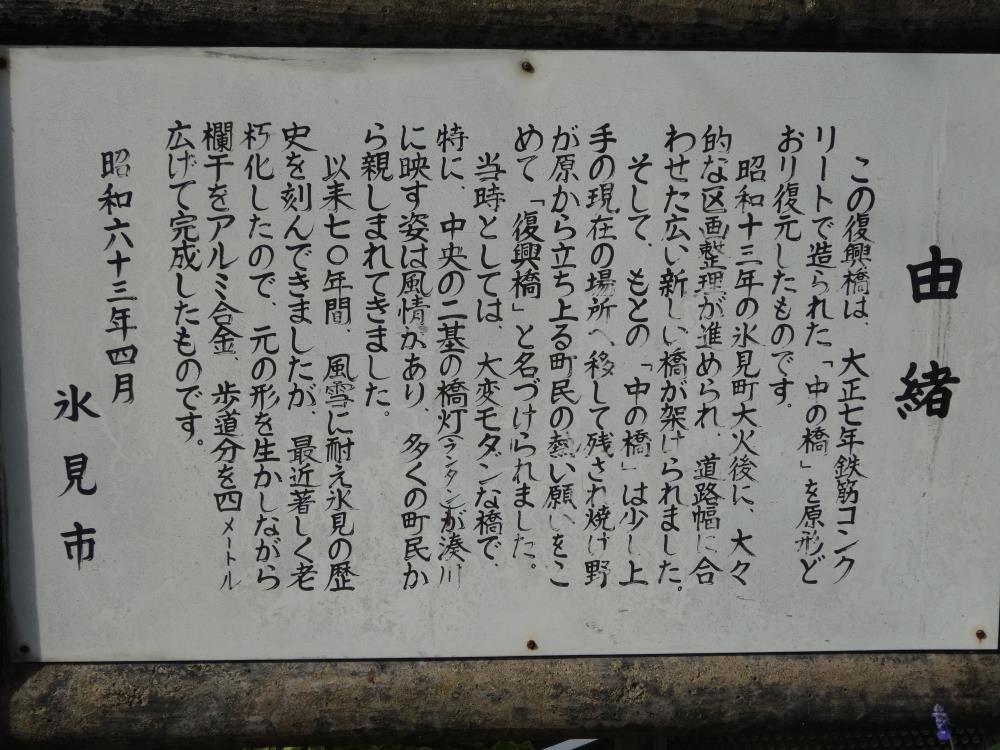 由緒
この復興橋は、大正七年鉄筋コンク
リートで造られた「中の橋」を原形ど
おり復元したものです。
昭和十三年の氷見町大火後に、大々
的な区画整理が進められ、道路幅に合
わせた広い新しい橋が架けられました。
そして、もとの「中の橋」は少し上
手の現在の場所へ移して残され焼け野
が原から立ち上る町民の熱い願いをこ
めて「復興橋」と名づけられました。
当時としては、大変モダンな橋で、
特に、中央の二基の橋灯(ランタン)が湊川
に映す姿は風情があり、多くの町民か
ら親しまれてきました。
以来七〇年間、風雪に耐え氷見の歴
史を刻んできましたが、最近著しく老
朽化したので、元の形を生かしながら
欄干をアルミ合金、歩道分を四メートル
広げて完成したものです。
昭和六十三年四月
氷見市